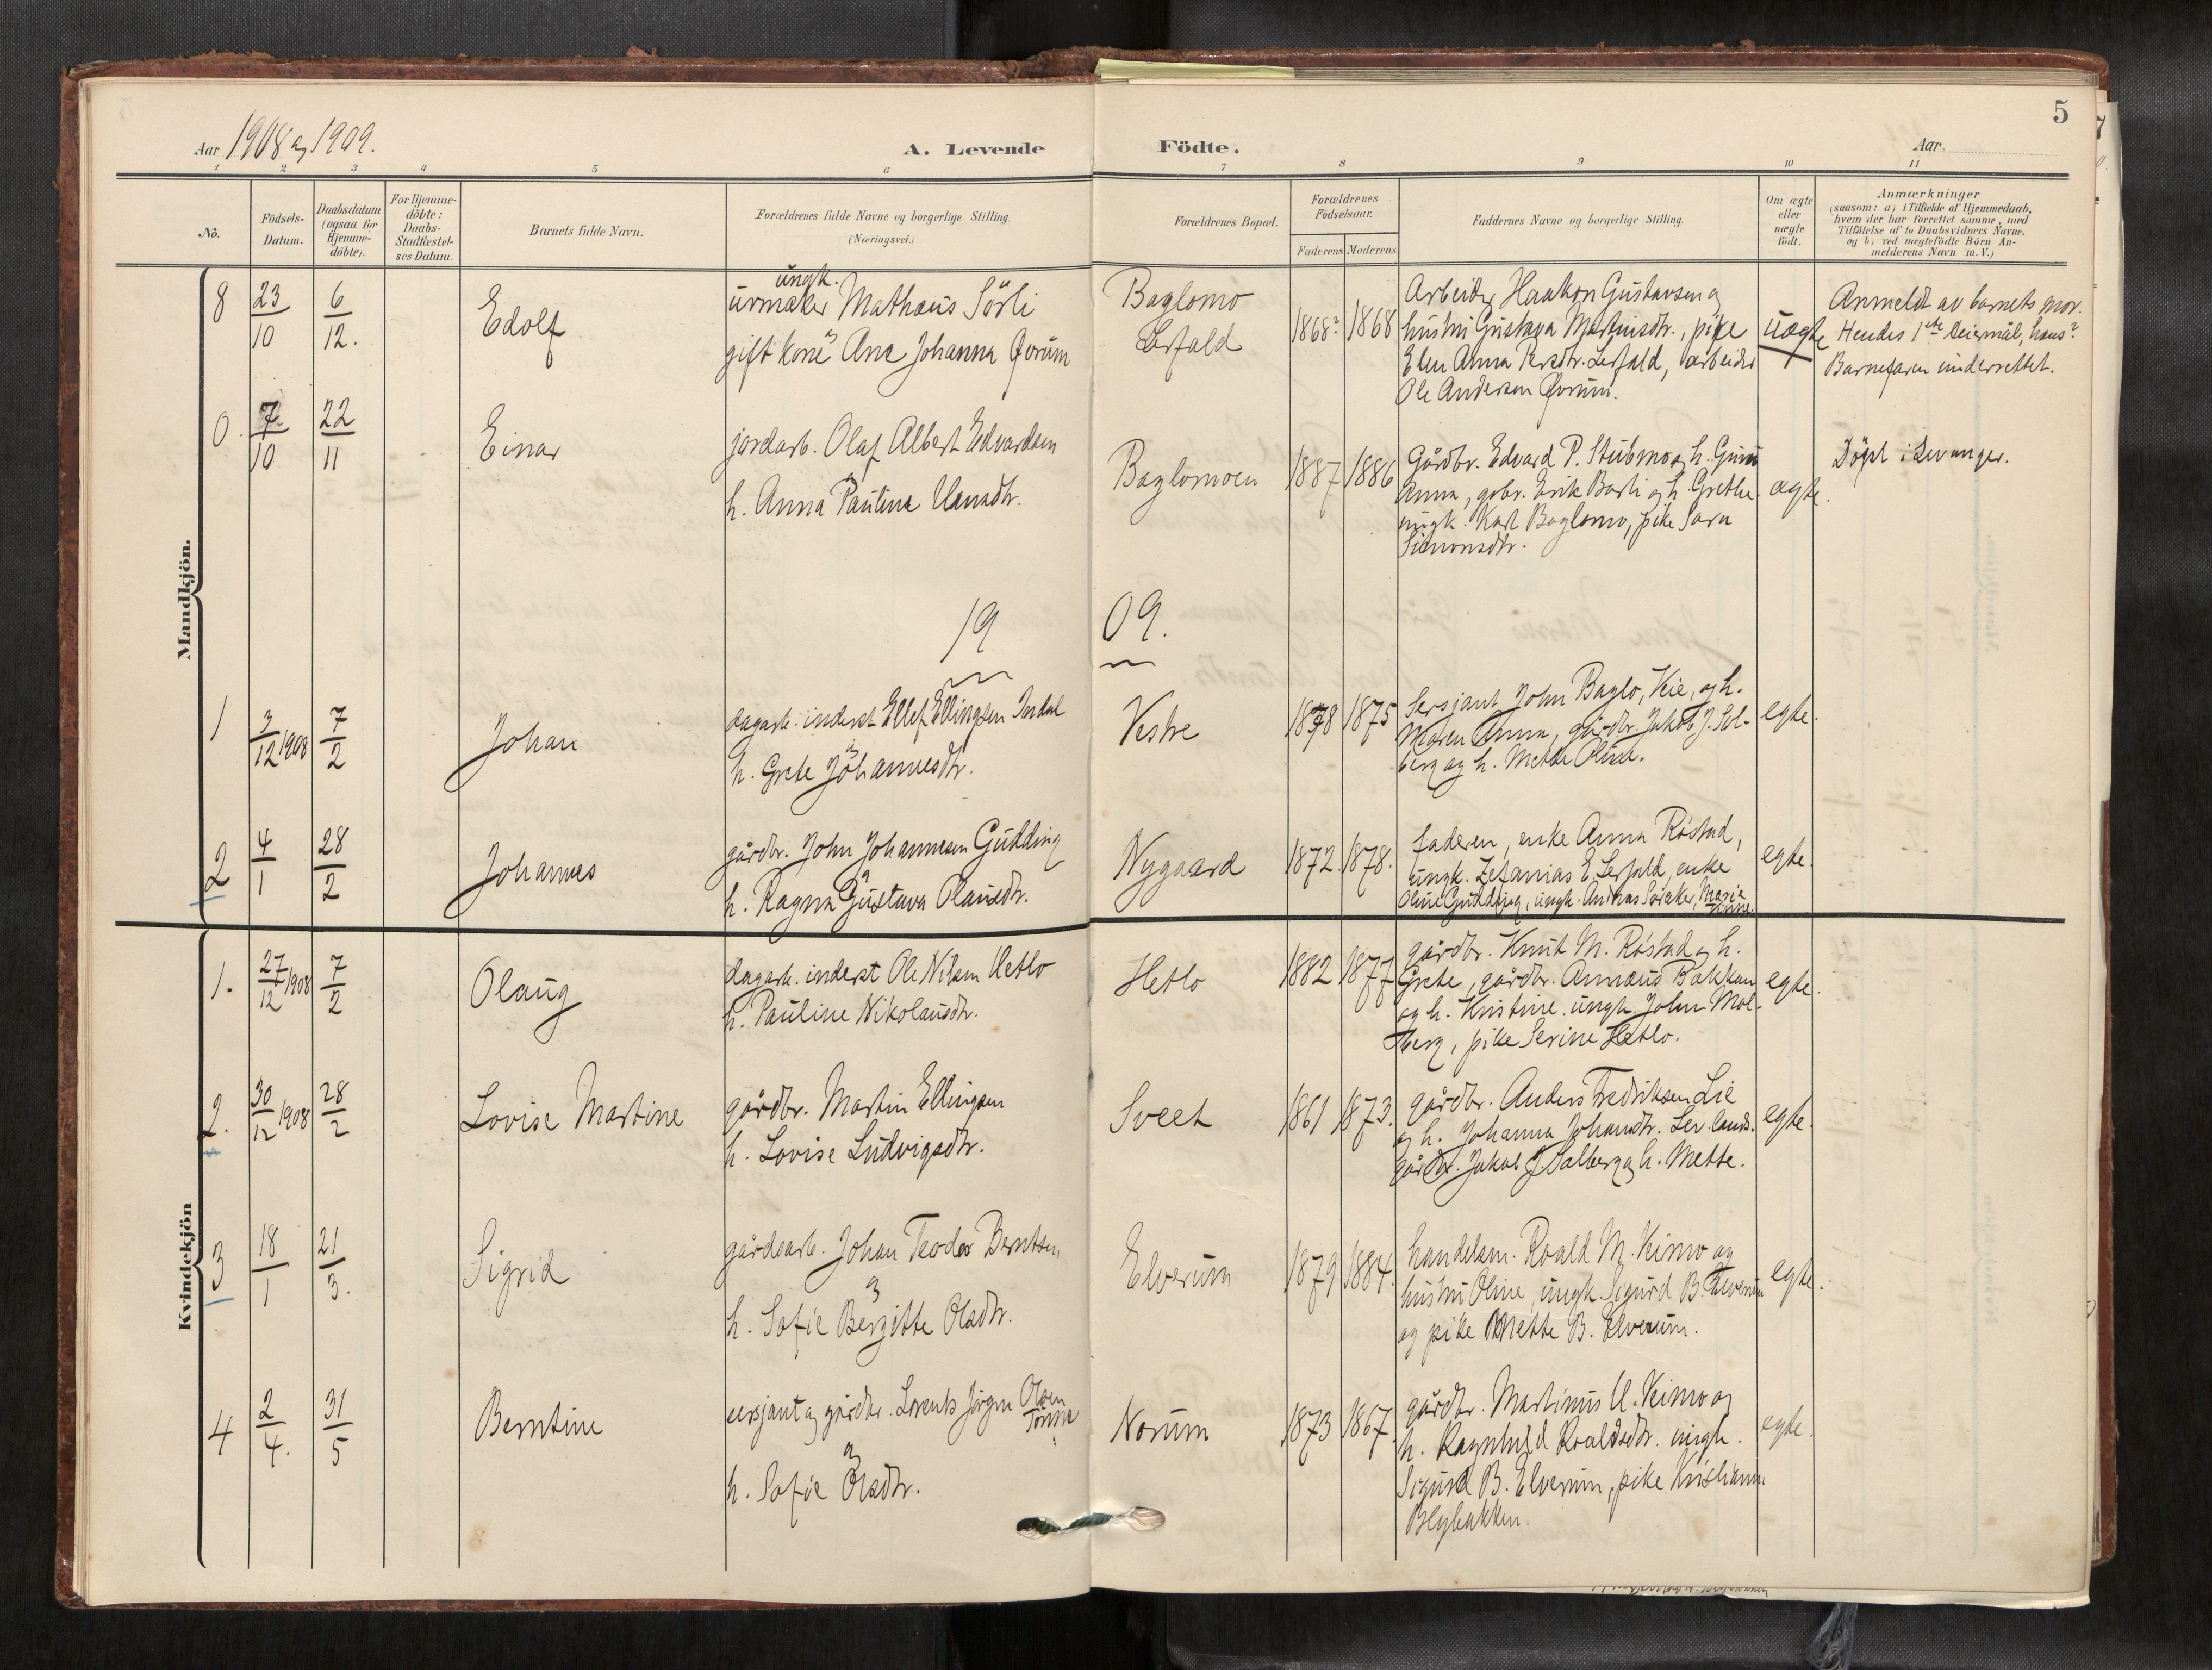 5
Aar 1908 og 1909.
A. Levende Födte.
Aar
1 2 3 4 5 6 7 8 9 10 11
No.
Födsels-Datum.
Daabsdatum (ogsaa for Hjemme-döbte).
For Hjemme-döbte: Daabs-Stadfæstel-ses Datum.
Barnets fulde Navn.
Forældrenes fulde Navne og borgerlige Stilling
(Næringsvei.)
Forældrenes Bopæl.
Forældrenes Födselsaar.
Faderens Moderens
Faddernes Navne og borgerlige Stilling.
Om ægte eller uægte födt.
Anmærkninger
(saasom: a) i Tilfælde af Hjemmedaab,
hvem der har forrettet samme, med
Tilföielse af to Daabsvidners Navne,
og b) ved uægtefödte Börn An-
melderens Navn m. V.)
Mandkjön.
8 23/10 6/12. Edolf
ungk.
urmaker Mathæus Sörli
og
gift kone Ane Johanna Qvrum
Baglomo
Lerfald
1868? 1868
Arbeider Haakon Gustavsen og
hustru Gustava Martinisdtr., pike
Elen Anna Persdtr. Lerfald, arbeider
Ole Andersen
uægte
Anmeldt av barnets mor.
Hendes 1ste leiermål, hans?
Barnefaren underrettet.
0. 7/10 22/11 Einar
jordarb. Olaf Albert Edvardsen
og
h. Anna Paulina Hansdtr.
Baglomoen
1887 1886
Gårdbr. Edvard P. Stubmo og h.
Anna, grbr. Erik Borli og h. Grethe
ungk. Karl Baglomo, pike Sara
Simonsdtr.
ægte.
Döpt i Levanger.
1909.
1 3/12 1908 7/2 Johan
dagarb. inderst Ellef Ellingsen Indal
og
h. Grete Johannesdtr.
Vestre
1878 1875
Sersjant John Baglo, Veie, og h.
Maren Anna, gårdbr. Jakob J. Sol-
berg og h. Mette Oline.
egte.
2 4/1 28/2 Johannes
gårdbr. John Johannesen Gudding
og
h. Ragna Gustava Olausdtr.
Nygaard
1872. 1878.
faderen, enke Anna Röstad,
ungk. Zefanias E. Lerfald, enke
Oline Gudding, ungk. Andreas Maria
egte.
Kvindekjön
1. 27/12 1908 7/2 Olaug
dagarb. inderst Ole Nilsen Hetlo
h. Pauline Nikolausdtr.
Hetlo
1882 1877
gårdbr. Knut M. Röstad og h.
Grete, gårdbr. Annæus Bakkan
og h. Kristine. ungk. John Mol-
berg, pike Serine Hetlo.
egte.
2. 30/12 1908 28/2 Lovise Martine
gårdbr. Martin Ellingsen
h. Lovise Ludvigsdtr.
Sveet
1861 1873.
gårdbr. Anders Fredriksen Lie
og h. Johanna Johansdtr. Lev. lands.
gårdbr. Jakob J. Salberg og h. Mette.
egte.
3 18/1 21/3. Sigrid
gårdsarb. Johan Teodor Berntsen
og
h. Sofie Bergitte Olsdtr.
Elverum
1879 1884.
handelsm. Roald M. Veimo og
hustru Oline, ungk. Sigurd B. Elverum
og pike Mette B. Elverum.
egte.
4 2/4. 31/5 Berntine
sersjant og gårdbr. Lorents Jörgen Olsen
Tönne
og
h. Sofie Olsdtr.
Norum
1873 1867.
gårdbr. Martinus U. Veimo og
h. Ragnhild Roaldsdtr. ungk.
Sigurd B. Elverum, pike Kristianna
Blybakken.
egte.